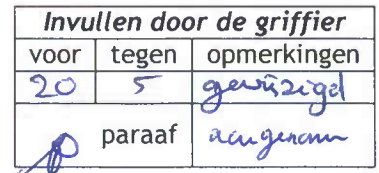 Invullen door de griffier
voor tegen opmerkingen
20 5 gewijzigd
paraaf aangenomen